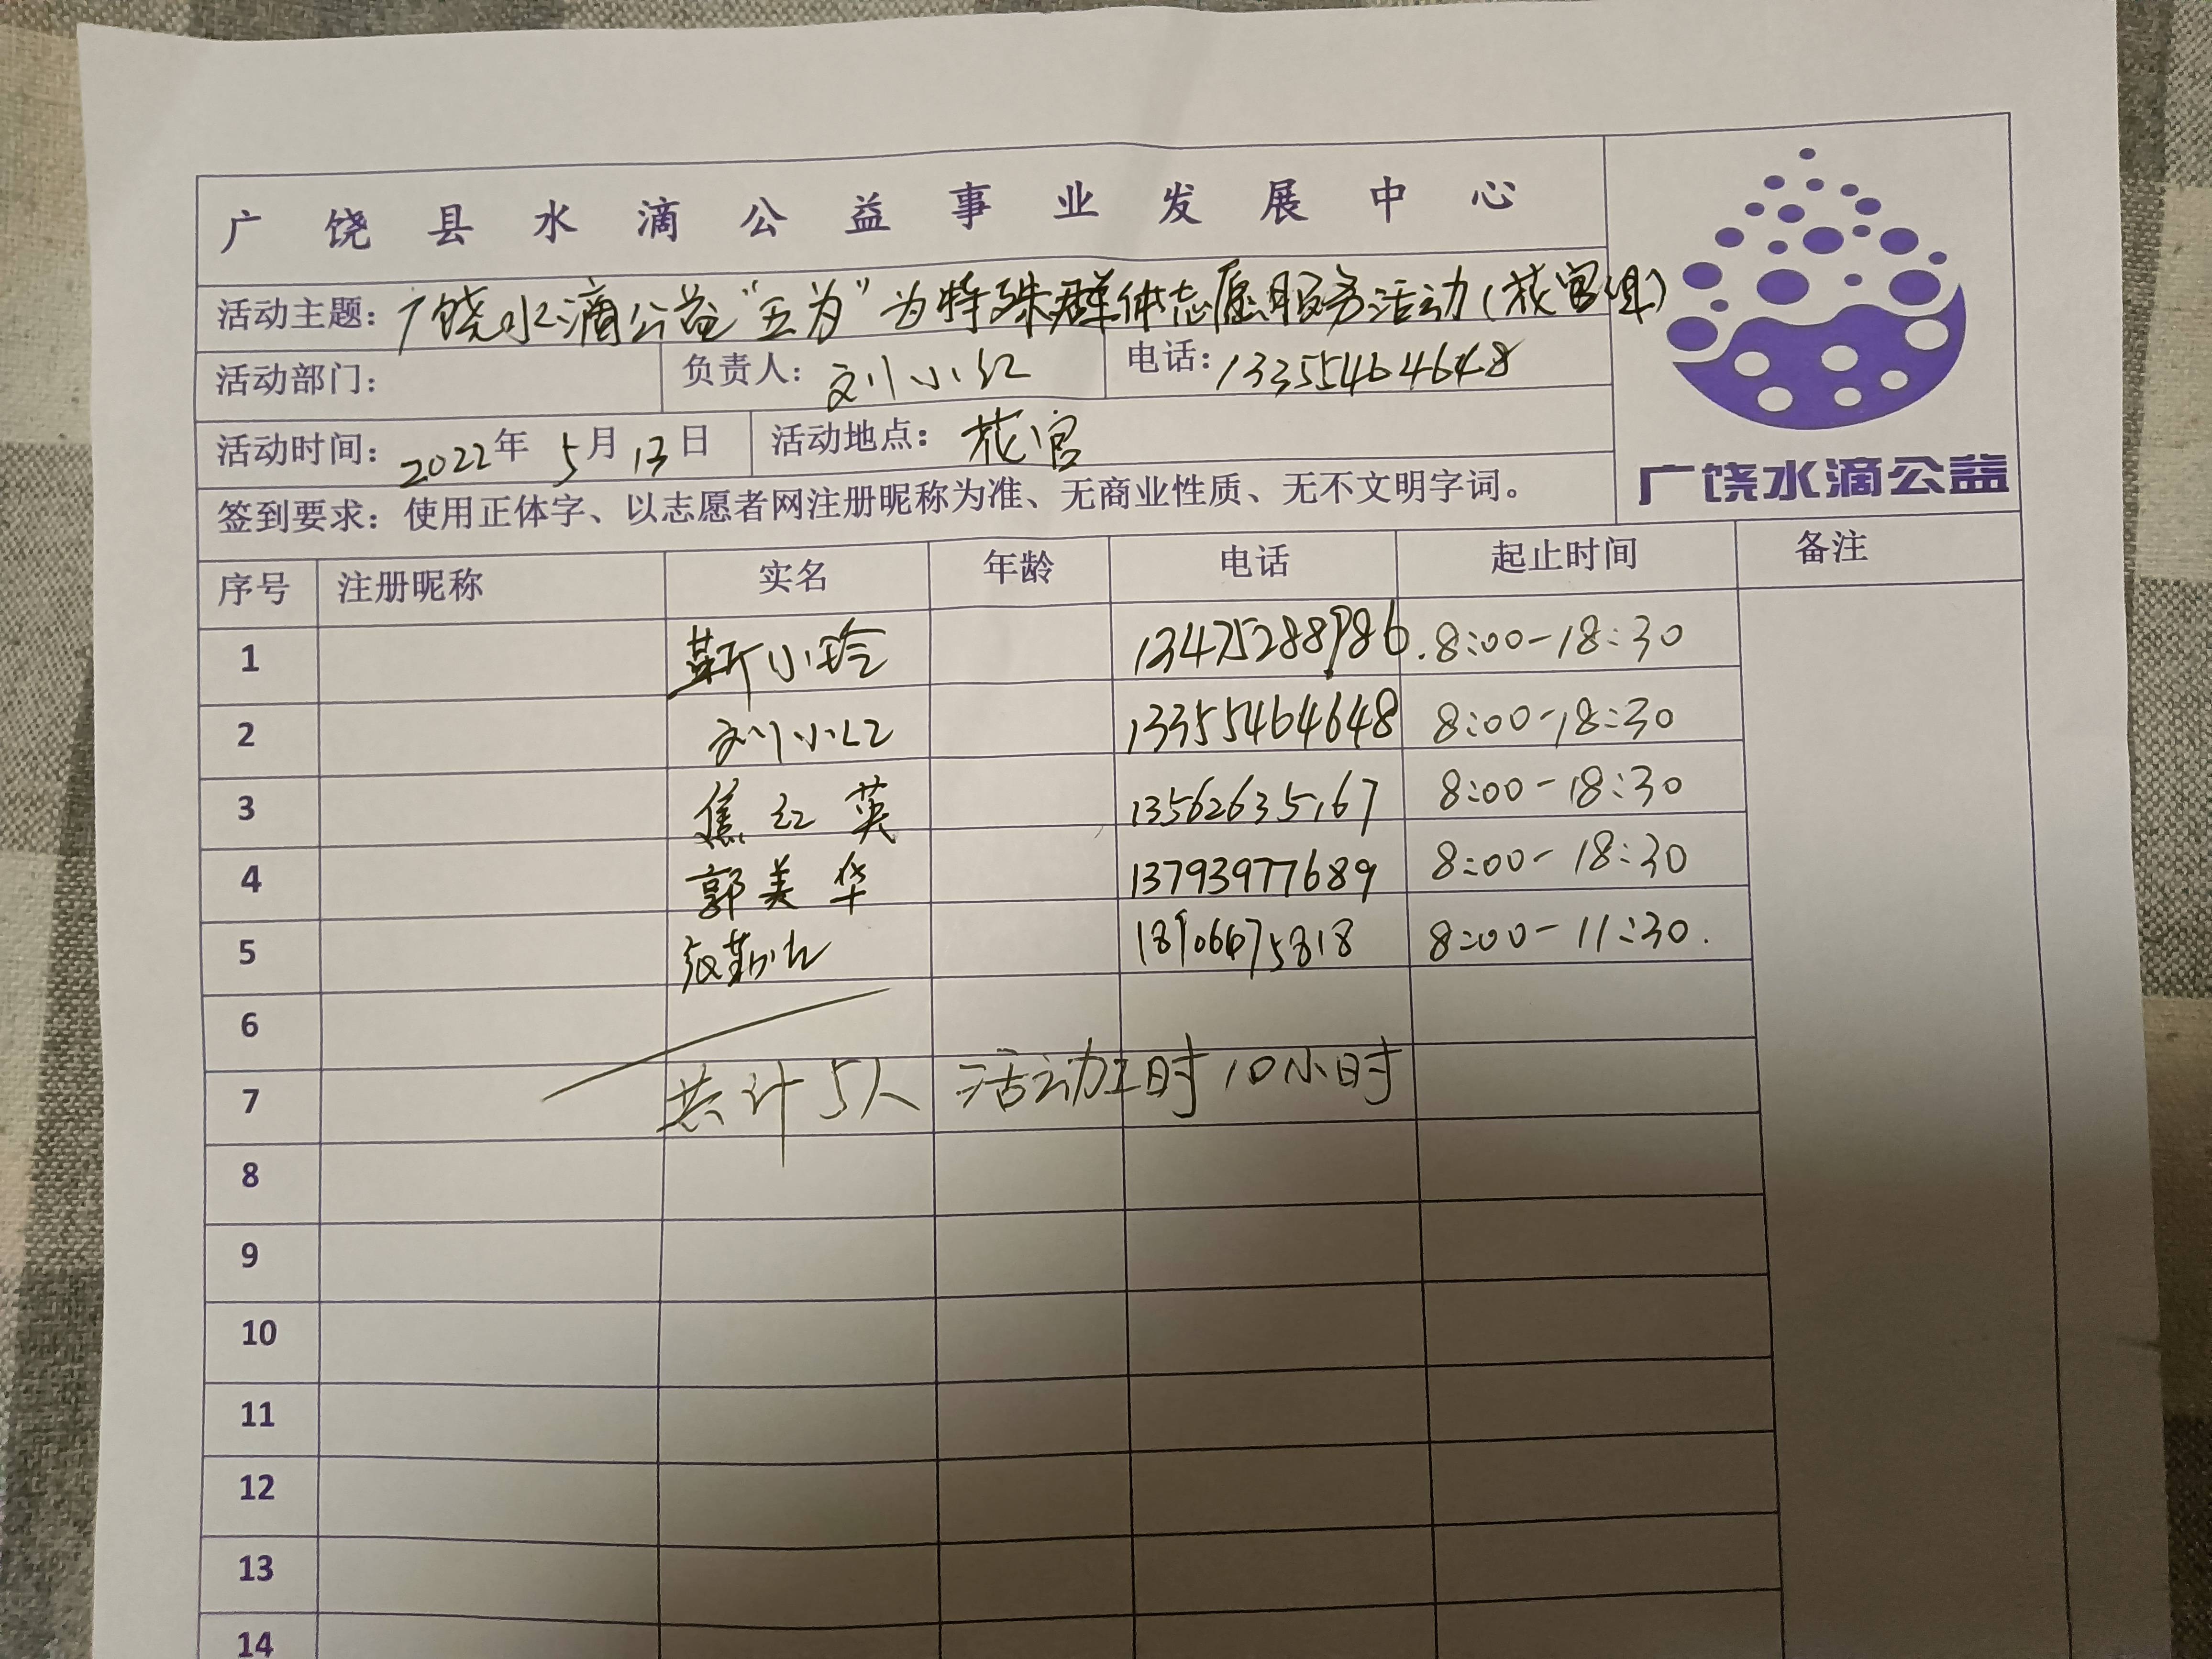 广饶县水滴公益事业发展中心
活动主题：广饶水滴公益“五为”为特殊群体志愿服务活动(花官组)
活动部门： 负责人：刘小红 电话：13355464648
活动时间：2022年 5月13日 活动地点：花官
签到要求：使用正体字、以志愿者网注册昵称为准、无商业性质、无不文明字词。
广饶水滴公益
序号 注册昵称 实名 年龄 电话 起止时间 备注
1 靳小玲 13475288986. 8:00-18:30
2 刘小红 13355464648 8:00-18:30
3 焦红英 13562635167 8:00-18:30
4 郭美华 13793977689 8:00-18:30
5 8:00-11:30.
6
7 共计5人 活动工时10小时
8
9
10
11
12
13
14